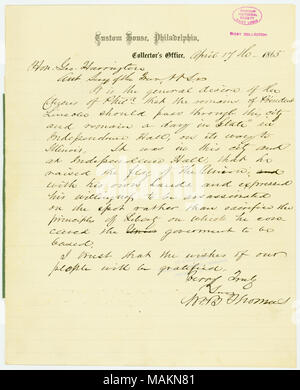 Custom House, Philadelphia,
Collector's Office, April 17th 1865
Hon. Geo. Harrington
Asst Secy of the Treas, U. S.
It is the general desire of the
Citizens of Phila. that the remains of President
Lincoln should pass through the city
and remain a day in State in
Independence Hall, on its way to
Illinois. It was in this city and
at Independence Hall, that he
raised the flag of the Union,
with his own hands and expressed
his willingness to be assassinated
on the spot rather than sacrifice the
principles of Liberty on which he con
ceived the government to be
based.
I trust that the wishes of our
people will be gratified.
Very Truly
Wm B. Thomas
alamy
Image ID: MAKN81
www.alamy.com